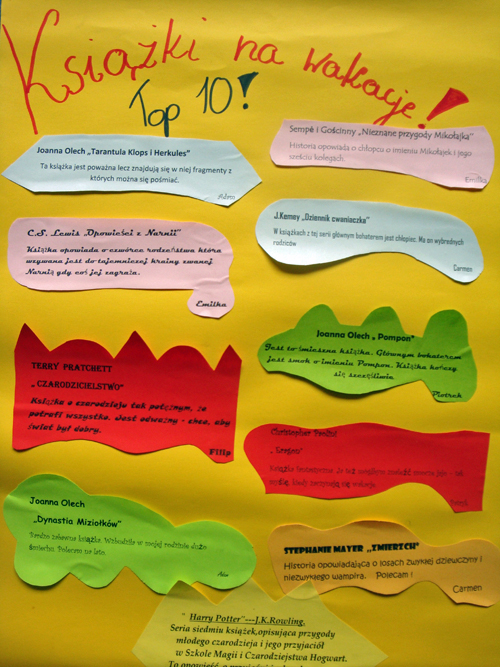 Książki na wakacje!
Top 10!
Joanna Olech „Tarantula Klops i Herkules”
Ta książka jest poważna lecz znajdują się w niej fragmenty z
których można się pośmiać.
Adam
Sempé i Gościnny „Nieznane przygody Mikołajka”
Historia opowiada o chłopcu o imieniu Mikołajek i jego
sześciu kolegach.
Emilka
C.S. Lewis „Opowieści z Narnii”
Książka opowiada o czwórce rodzeństwa która
wzywana jest do tajemniczej krainy zwanej
Narnią gdy coś jej zagraża.
Emilka
J.Kenney „Dziennik cwaniaczka”
W książkach z tej serii głównym bohaterem jest chłopiec. Ma on wybrednych
rodziców
Carmen
TERRY PRATCHETT
„CZARODZICIELSTWO”
Książka o czarodzieju tak potężnym, że
potrafi wszystko. Jest odważny – chce, aby
świat był dobry.
Filip
Joanna Olech „ Pompon”
Jest to śmieszna książka. Głównym bohaterem
jest smok o imieniu Pompon. Książka kończy
się szczęśliwie
Piotrek
Christopher
Książka
Joanna Olech
„Dynastia Miziołków”
Bardzo zabawna książka. Wzbudziła w mojej rodzinie dużo
śmiechu. Polecam na lato.
Ala
STEPHANIE MAYER „ZMIERZCH”
Historia opowiadająca o losach zwykłej dziewczyny i
niezwykłego wampira. Polecam !
Carmen
" Harry Potter"---J.K.Rowling.
Seria siedmiu książek,opisująca przygody
młodego czarodzieja i jego przyjaciół
w Szkole Magii i Czarodziejstwa Hogwart.